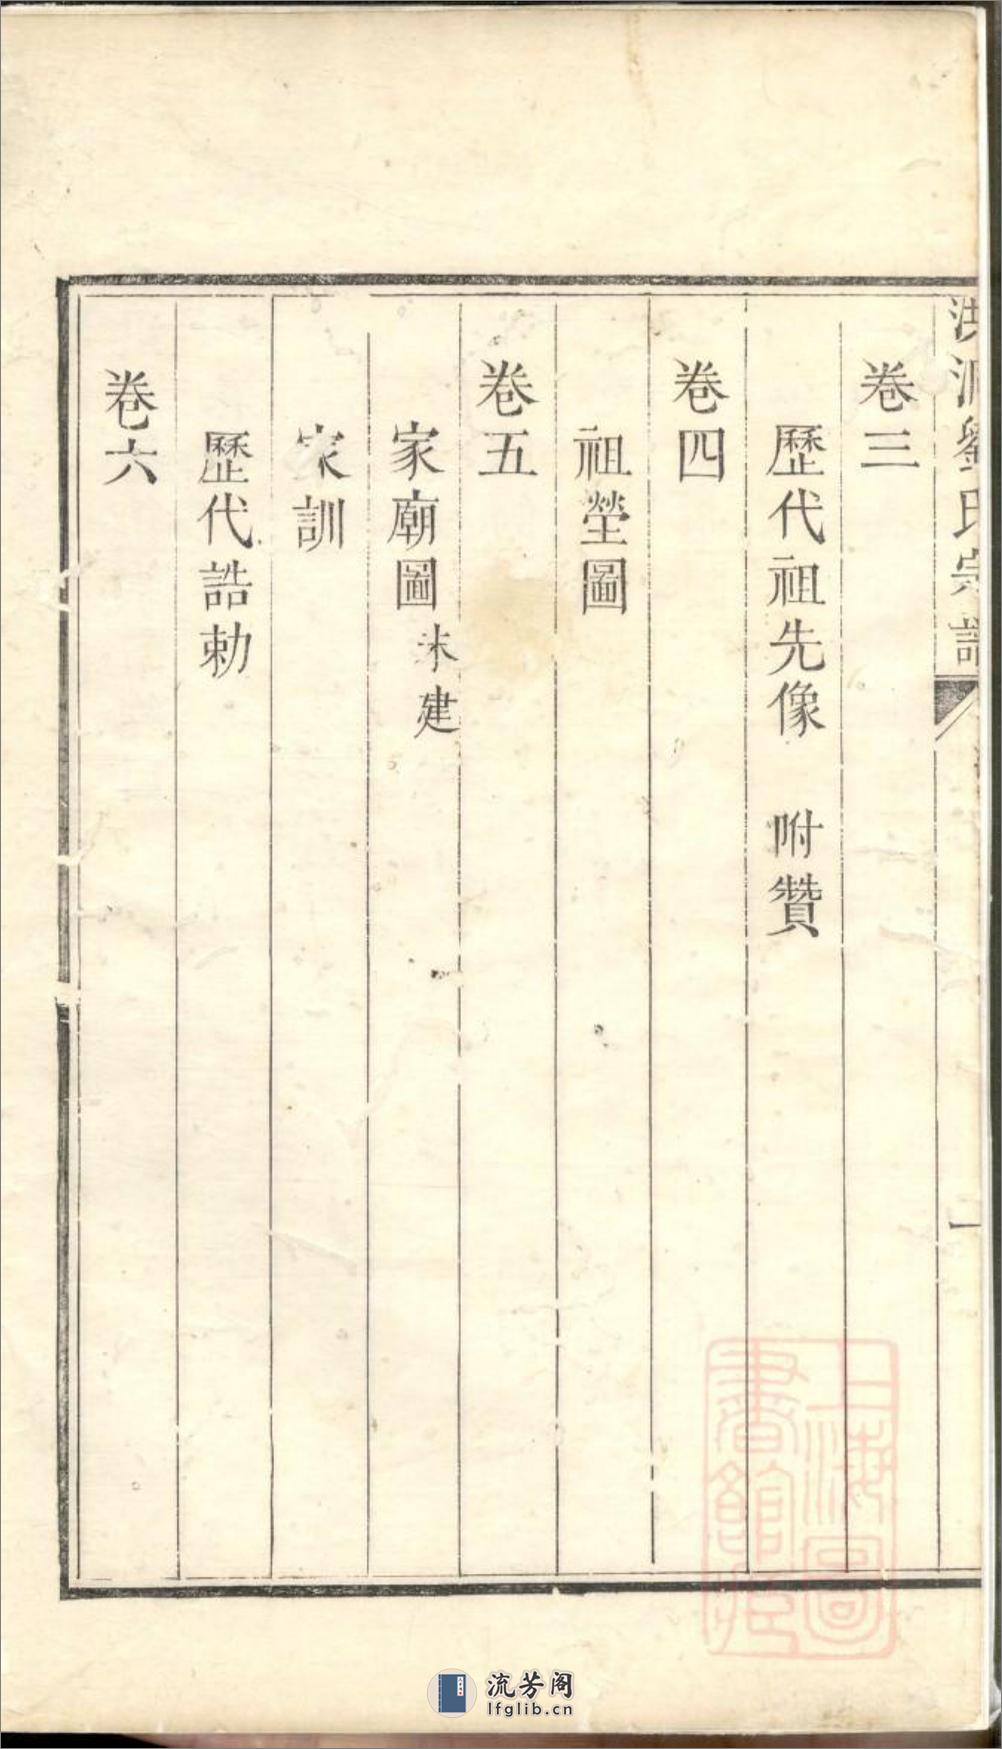 洪洞劉氏宗譜
一
卷三
歷代祖先像 附贊
卷四
祖塋圖
卷五
家廟圖 未建
家訓
歷代誥勅
卷六
上海圖書館藏
流芳阁
lfglib.cn